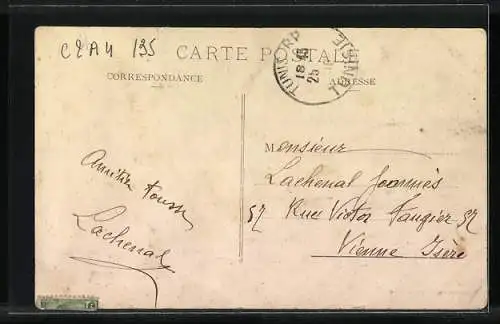 C2A4 135
CARTE POSTALE
TUNIS RP
18 45
25
TUNISIE
CORRESPONDANCE
ADRESSE
Monsieur
Lachenal Joannès
57 Rue Victor Faugier 57
Vienne Isère
Amitiés
Lachenal